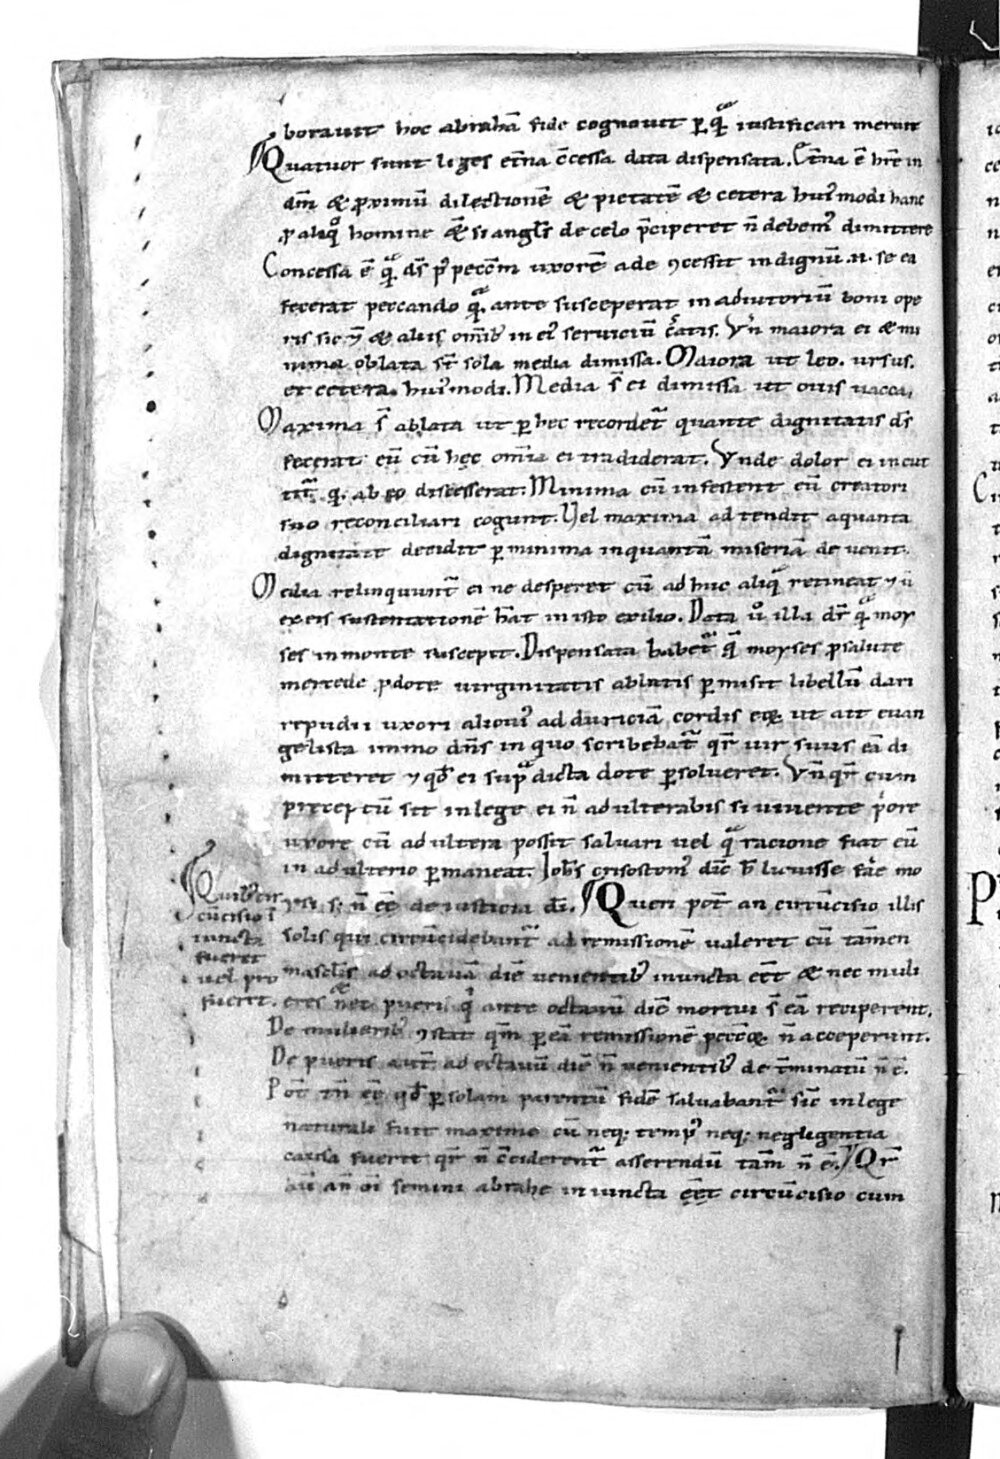 borauit hoc abrahā fide cognouit p̄ q̄ iustificari meruit
Quatuor sunt leges et̄na c̄cessa data dispensata. Et̄na ē hr̄e in
dm̄ & proximū dilectionē & pietatē & cetera hui᾽modi hanc
ꝓ aliqͦ homine & si angl̄s de celo p̄ciperet n̄ debem᾽ dimittere
Concessa ē q̄ ds̄ p᾽ pecc̄m uxorē ade ꝯcessit indignū .n. se ea
fecerat peccando q̄ ante susceperat in adiutoriū boni ope
ris sic ⁊ & aliis om̄ib᾽ in ei᾽ seruiciū c̄atis. Vn̄ maiora ei & mi
nima oblata st̄ sola media dimissa. Maiora ut leo. ursus.
et cetera hui᾽modi. Media s̄ ei dimissa ut ouis uacca.
Maxima s̄ ablata ut p̄ hec recordet᾽ quante dignitatis ds̄
fecerat eū cū hęc om̄ia ei tradiderat. Vnde dolor ei incut
tit᾽ q. ab eo discesserat. Minima eū infestent eū creatori
suo reconciliari cogunt. Vel maxima adtendit a quanta
dignitate decidit p̄ minima in quantā miseriā deuenit.
Media relinquunt᾽ ei ne desperet cū adhuc aliq̄ retineat ⁊ ū
ex eis sustentationē h̄at in isto exilio. Data ū illa dr̄ q̄ moy
ses in monte suscepit. Dispensata habet᾽ q̄ moyses ꝓ salute
mercede ꝓ dote uirginitatis ablatis p̄misit libellū dari
repudii uxori alioui᾽ ad duriciā cordis eoꝝ ut ait euan
gelista immo dn̄s in quo scribebat᾽ qr̄ uir suus eā di
mitteret ⁊ qd̄ ei sup̄dicta dote p̄solueret. Vn̄ qr̄ cum
preceptū sit in lege ei n̄ adulterabis si uiuente priore
uxore cū adultera possit saluari uel q̄ racione fiat cū
in adulterio p̄maneat. Ioh̄s crisostom᾽ dic̄ h̄ licuisse fac̄e mo
ysi si n̄ eē de iusticia dī. Queri pot̄ an circūcisio illis
Quib᾽ cir
cūcisio ī
iuncta
fuerit
uel pro
fuerit.
solis qui circūcidebant᾽ ad remissionē ualeret cū tam̄en
mascl̄is ad octauā diē uenientib᾽ iniuncta eēt & nec muli
eres nec pueri q̄ ante octauū diē mortui s̄ eā reciperent.
De mulierib᾽ ꝯstat qm̄ p̄ eā remissionē pecc̄oꝝ n̄ acceperunt.
De pueris aut̄ ad octauū diē n̄ uenientib᾽ det̄minatū n̄ ē.
Pot̄ tn̄ eē qd̄ p̄ solam parentū fidē saluabant᾽ sic̄ in lege
naturali fuit maxime cū neq; temp᾽ neq; negligentia
causa fuerit qr̄ n̄ c̄ciderent᾽ asserendū tam̄ n̄ ē. Qr̄
aū an oī semini abrahe iniuncta eēt circūcisio cum